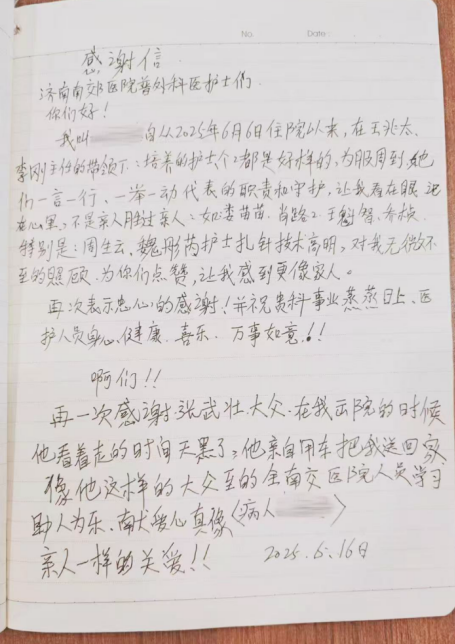 No
Date:
感谢信
济南南郊医院普外科医护士们
你们好!
我叫 自从2025年6月6日住院以来,在王兆太、
李刚主任的带领下:培养的护士个个都是好样的,为服周到,她
们一言一行、一举一动代表的职责和守护,让我看在眼 记
在心里,不是亲人胜过亲人:如娄苗苗、肖路
特别是:周生云、魏彤芮护士扎针技术高明,对我无微不
至的照顾 为你们点赞,让我感到更像家人。
再次表示忠心的感谢!并祝贵科事业蒸蒸日上、医
护人员身心健康、喜乐、万事如意!!
啊们!!
再一次感谢张武壮大众.在我出院的时候
他看着走的时间天黑了,他亲自用车把我送回家
像他这样的大众至的全南交医院人员学习
助人为乐、献爱心真像(病人 )
亲人一样的关爱!! 2025.6.16日